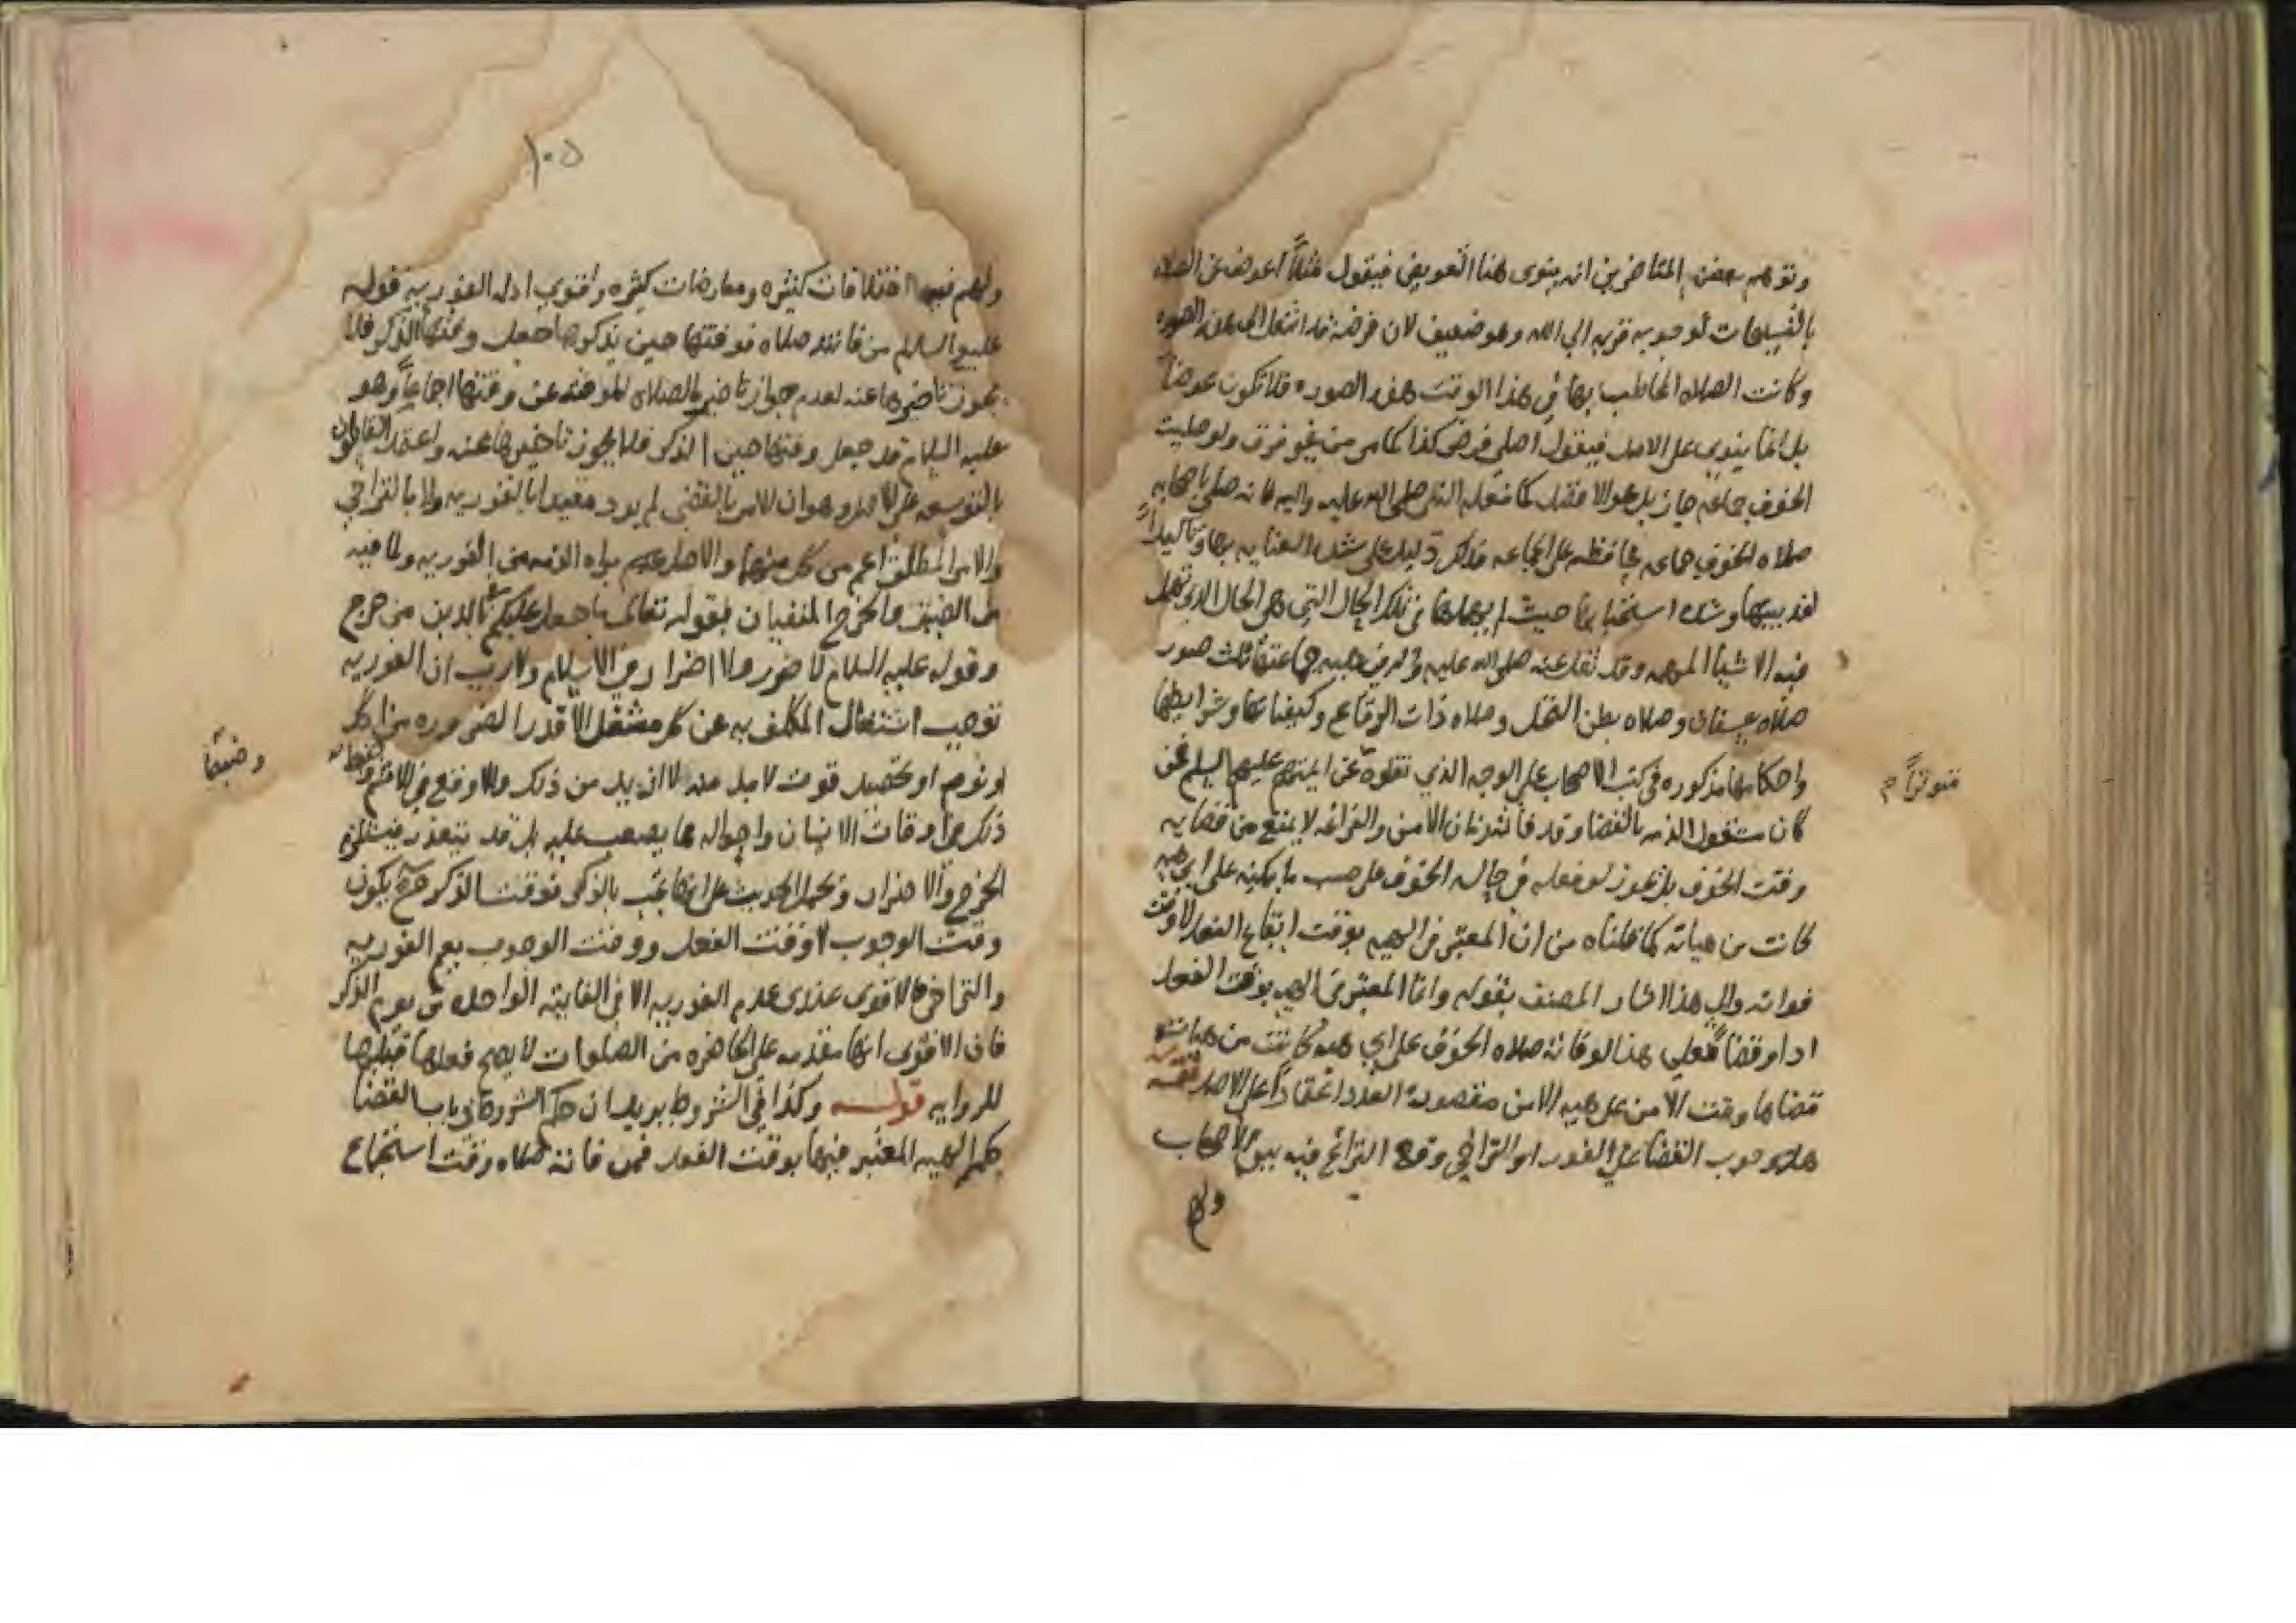 وتوهم بعض المتاخرين انه ينوي هنا التعويض فيقول مثلاً اعوض عن الصلاه
بالتسبيحات لوجوبه قربه الي الله وهو ضعيف لان فرضه قد انتقل الي هذه الصوره
وكانت الصلاه المخاطب بها في هذا الوقت هذه الصوره فلا تكون عوضاً
بل انما ينوي علي الاصل فيقول اصلي فرض كذا كما مر من غير فرق ولو صليت
الخوف جماعه جاز بل هو الافضل كما فعله النبي صلي الله عليه واله فانه صلي باصحابه
صلاه الخوف جماعه محافظه علي الجماعه فذلك دليل علي شده العنايه بها وتاكيداً
لندبيتها وشده استحبابها حيث لم يهملها في تلك الحال التي هي الحال الذي تهمل
فيه الاشيا المهمه وقد نقل عنه صلي الله عليه واله في هيه جماعتها ثلث صور
صلاه عسفان وصلاه بطن النخل وصلاه ذات الرقاع وكيفياتها وشرايطها
واحكامها مذكوره في كتب الاصحاب علي الوجه الذي نقلوه عن ايمتهم عليهم السلم فمن
متوتراً م
كان مشغول الذمه بالقضا وقد فاتته زمان الامن والفراغه لا يمنع من قضايه
وقت الخوف بل يجوز له فعله في حاله الخوف علي حسب ما يمكنه علي اي هيه
كانت من هياته كما قلناه من ان المعتبر في الهيه بوقت ايقاع الفعل لا وقت
فواته والي هذا اشار المصنف بقوله وانما المعتبر في الهيه بوقت الفعل
ادا او قضاً فعلي هذا لو فاتته صلاه الخوف علي اي هيه كانت من هياته
قضاها وقت الامن علي هيه الامن مقصوره العدد اعتماداً علي الاصل
هل وجوب القضا علي الفور او التراخي وقع النزاع فيه بين الاصحاب
ولهم
١٠٥
ولهم فيها اختلافات كثيره ومعارضات كثيره واقوي ادله الفوريه قوله
عليه السلام من فاتته صلاه فوقتها حين يذكرها جعل وقتها الذكر فلا
يجوز تاخيرها عنه لعدم جواز تاخير الصلاه الموقته عن وقتها اجماعاً وهو
عليه السلام قد جعل وقتها حين الذكر فلا يجوز تاخيرها عنه واعتمد القايلون
بالتوسعه علي الاصل وهو ان الامر بالقضي لم يرد مقيدا بالفوريه ولا بالتراخي
والامر المطلق اعم من كل منهما والاصل عدم براه الذمه من الفوريه ولما فيه
من الضيق والحرج المنفيان بقوله تعالي ما جعل عليكم في الدين من حرج
وقوله عليه السلام لا ضرر ولا اضرار في الاسلام ولا ريب ان الفوريه
توجب اشتغال المكلف به عن كل مشغل الا قدر الضروره من اكل
او نوم او تحصيل قوت لا بد منه لا ازيد من ذلك والا وقع في الاثم
وضبطا
ذلك من اوقات الانسان واحواله مما يصعب عليه بل قد يتعذر فيستلزم
الحرج والاضرار وتحمل الحديث علي انها تجب بالذكر فوقت الذكر هي يكون
وقت الوجوب لا وقت الفعل ووقت الوجوب يعم الفوريه
والتراخي فالاقوي عندي عدم الفوريه الا في الفايته الواحده في يوم الذكر
فان الاقوي انها مقدمه علي الحاضره من الصلوات لا يصح فعلها قبلها
للروايه قوله وكذا في الشروط يريد ان حكم الشروط في باب القضا
حكم الهيه المعتبر فيها بوقت الفعل فمن فاتته صلاه وقت استجماع